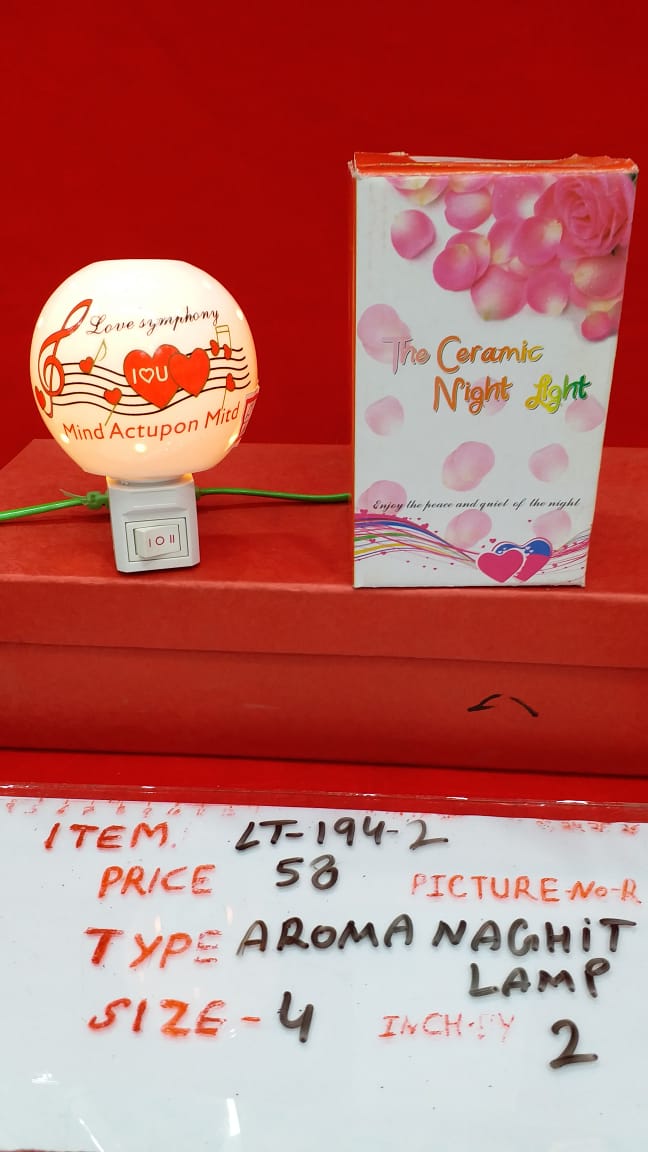 Love symphony
I♡U
Mind Actupon Mitd
I O II
The Ceramic
Night Light
Enjoy the peace and quiet of the night
ITEM. LT-194-2
PRICE 58
PICTURE-NO-R
TYPE AROMA NAGHIT
LAMP
SIZE-4 INCH-BY 2